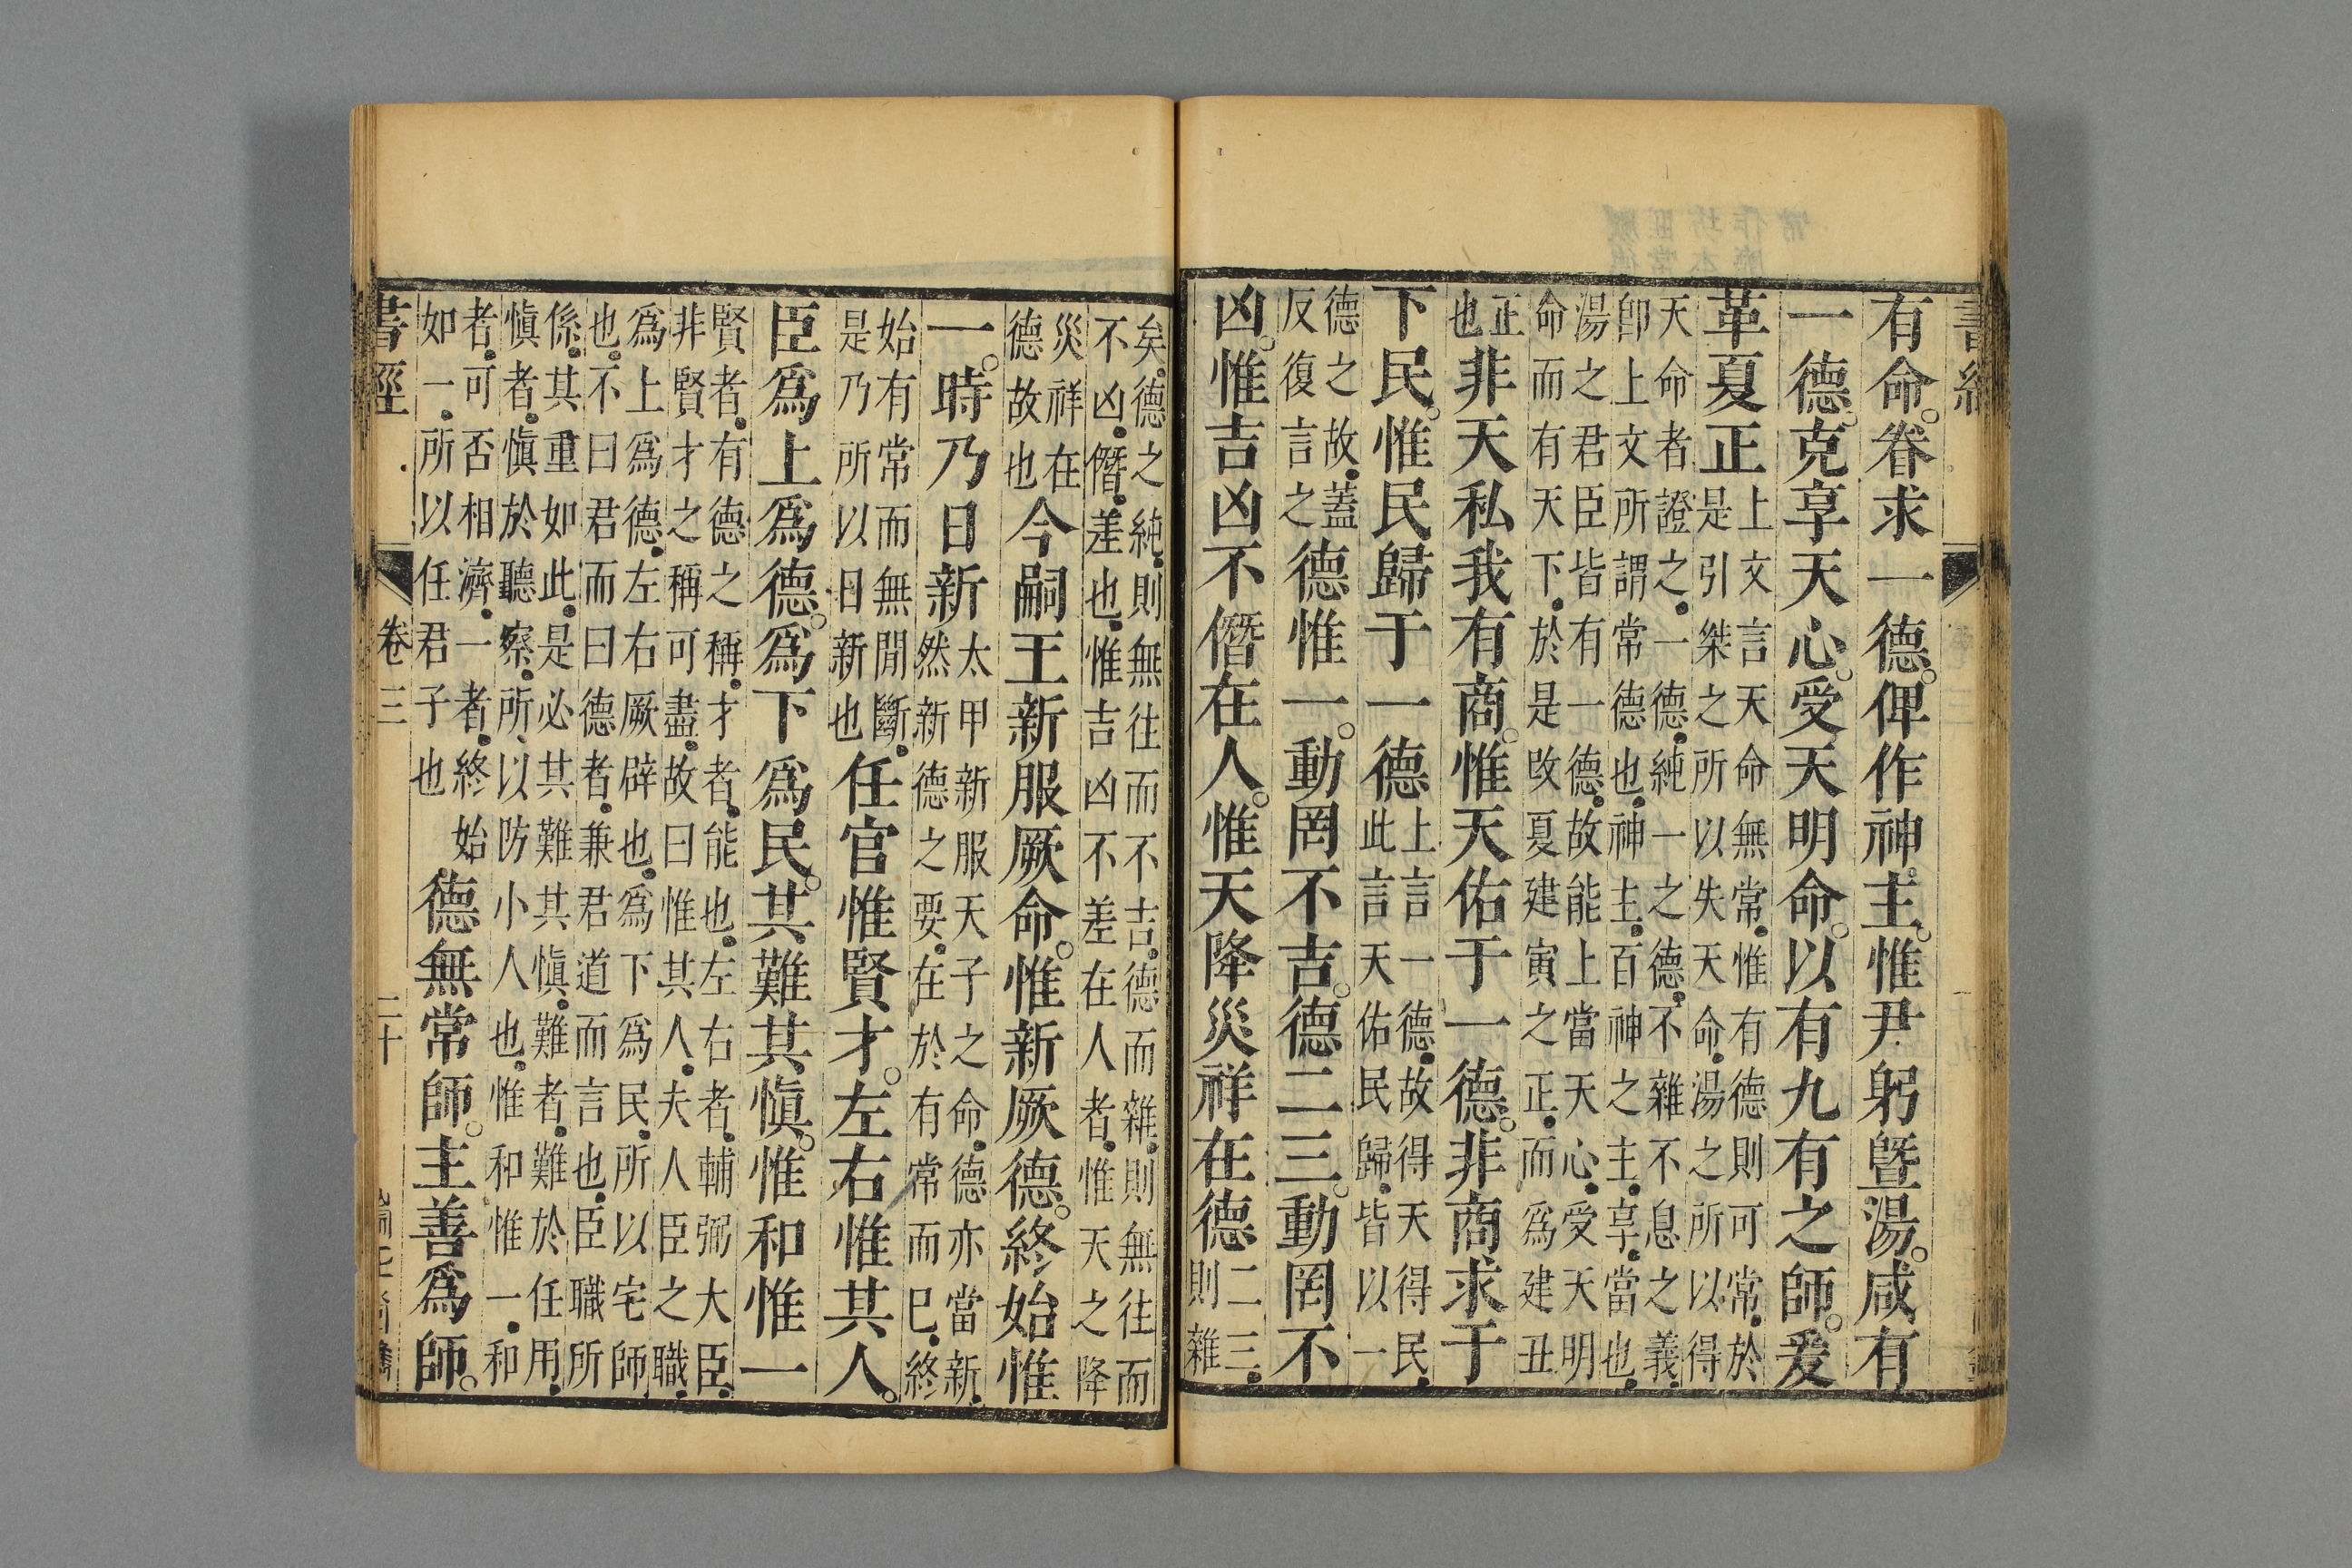 有命。眷求一德。俾作神主。惟尹躬曁湯。咸有
一德。克享天心。受天明命。以有九有之師。爰
革夏正上文言天命無常惟有德則可常於
是引桀之所以失天命湯之所以得
天命者證之一德純一之德不雜不息之義
卽上文所謂常德也神主百神之主享當也
湯之君臣皆有一德故能上當天心受天明
命而有天下於是改夏建寅之正而爲建丑
正也非天私我有商。惟天佑于一德。非商求于
下民。惟民歸于一德上言一德故得天得民
此言天佑民歸皆以一
德之故蓋
反復言之德惟一。動罔不吉。德二三。動罔不
凶。惟吉凶不僭在人。惟天降災祥在德二三
則雜
矣德之純則無往而不吉德而雜則無往而
不凶僭差也惟吉凶不差在人者惟天之降
災祥在
德故也今嗣王新服厥命。惟新厥德。終始惟
一。時乃日新太甲新服天子之命德亦當新
然新德之要在於有常而已終
始有常而無間斷
是乃所以日新也任官惟賢才。左右惟其人。
臣爲上爲德。爲下爲民。其難其愼。惟和惟一
賢者有德之稱才者能也左右者輔弼大臣
非賢才之稱可盡故曰惟其人夫人臣之職
爲上爲德左右厥辟也爲下爲民所以宅師
也不曰君而曰德者兼君道而言也臣職所
係其重如此是必其難其愼難者難於任用
愼者愼於聽察所以防小人也惟和惟一和
者可否相濟一者終始
如一所以任君子也德無常師。主善爲師。
書經
卷三
二十